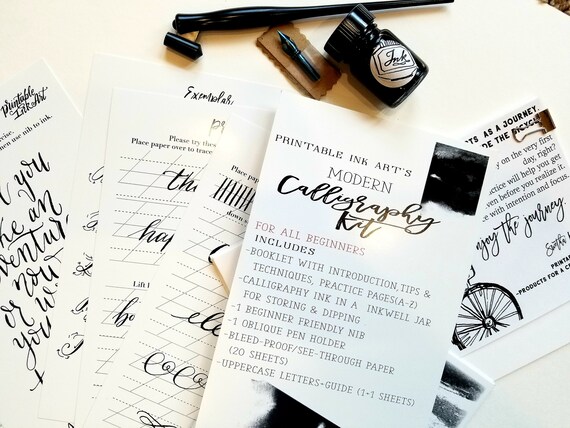 PRINTABLE INK ART'S
MODERN
Calligraphy
Kit
FOR ALL BEGINNERS
INCLUDES
-BOOKLET WITH INTRODUCTION,TIPS &
TECHNIQUES, PRACTICE PAGES(A-Z)
-CALLIGRAPHY INK IN A INKWELL JAR
FOR STORING & DIPPING
-1 BEGINNER FRIENDLY NIB
-1 OBLIQUE PEN HOLDER
-BLEED-PROOF/SEE-THROUGH PAPER
(20 SHEETS)
-UPPERCASE LETTERS+GUIDE (1+1 SHEETS)
Ink
Printable
Ink Art
nen use nib to ink.
you
an
now
or
you
Exemplar
Please try thes
Place paper over to trace
th
ha
Lift
bo
Place pap
down s
ele
coco
TS AS A JOURNEY,
DE THE BICYCL
y on the very first
day, right?
ctice will help you get
even before you realize it.
ce with intention and focus.
njoy the journey.
PRINTAB
-PRODUCTS FOR A C